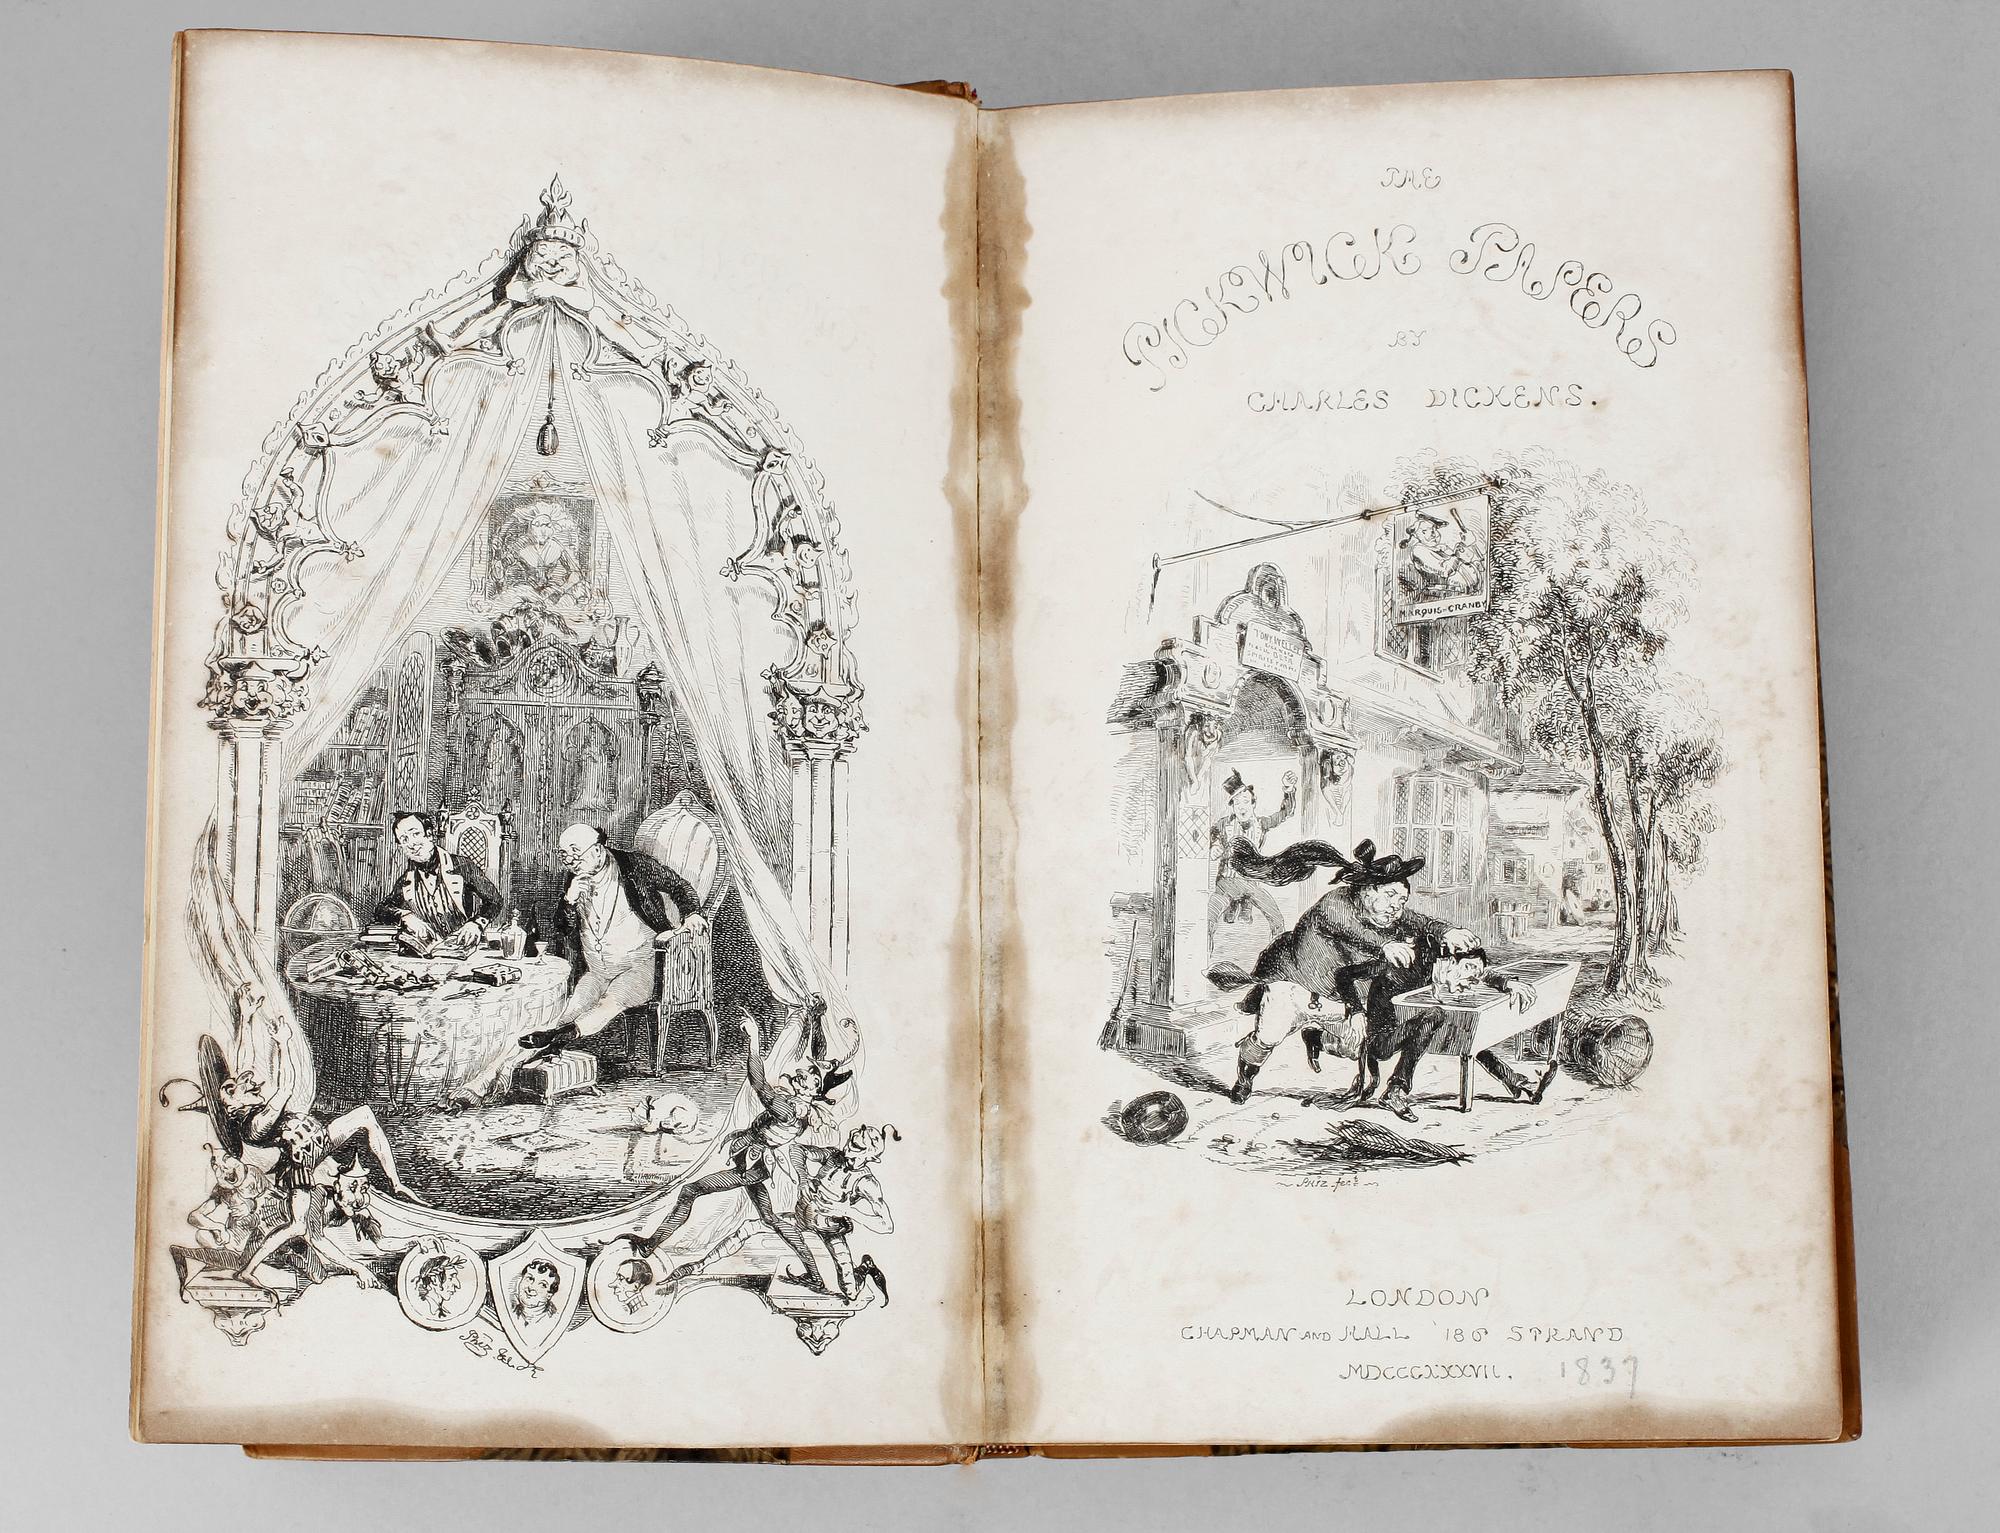 THE
PICKWICK PAPERS
BY
CHARLES DICKENS.
MARQUIS-GRANBY
TONY WELLER
Phiz fect.
Phiz
LONDON
CHAPMAN AND HALL 186 STRAND
MDCCCXXXVII. 1837